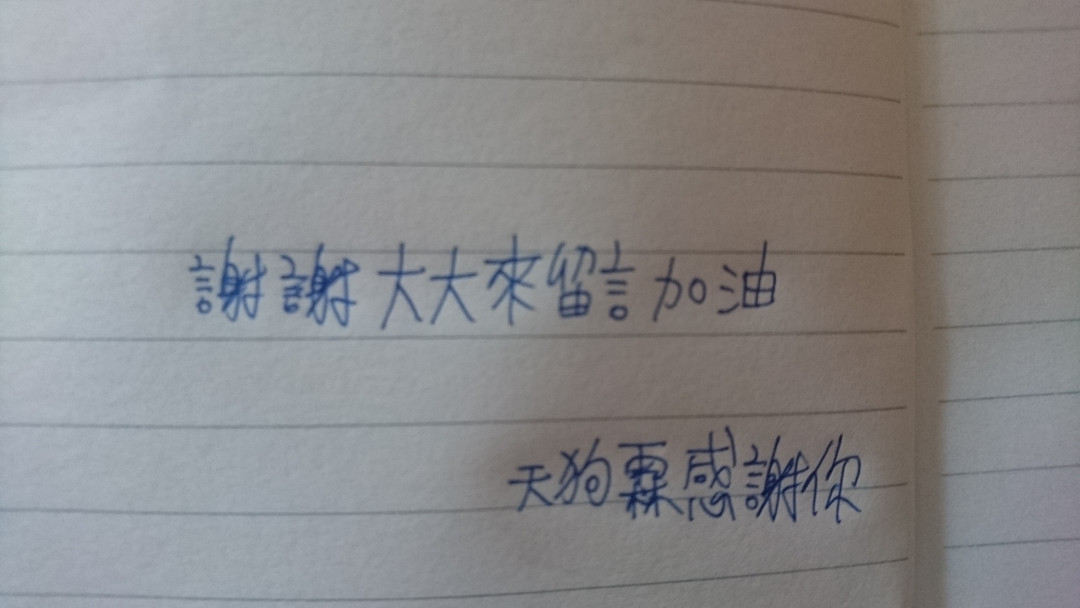 謝謝大大來留言加油
天狗霖感謝你